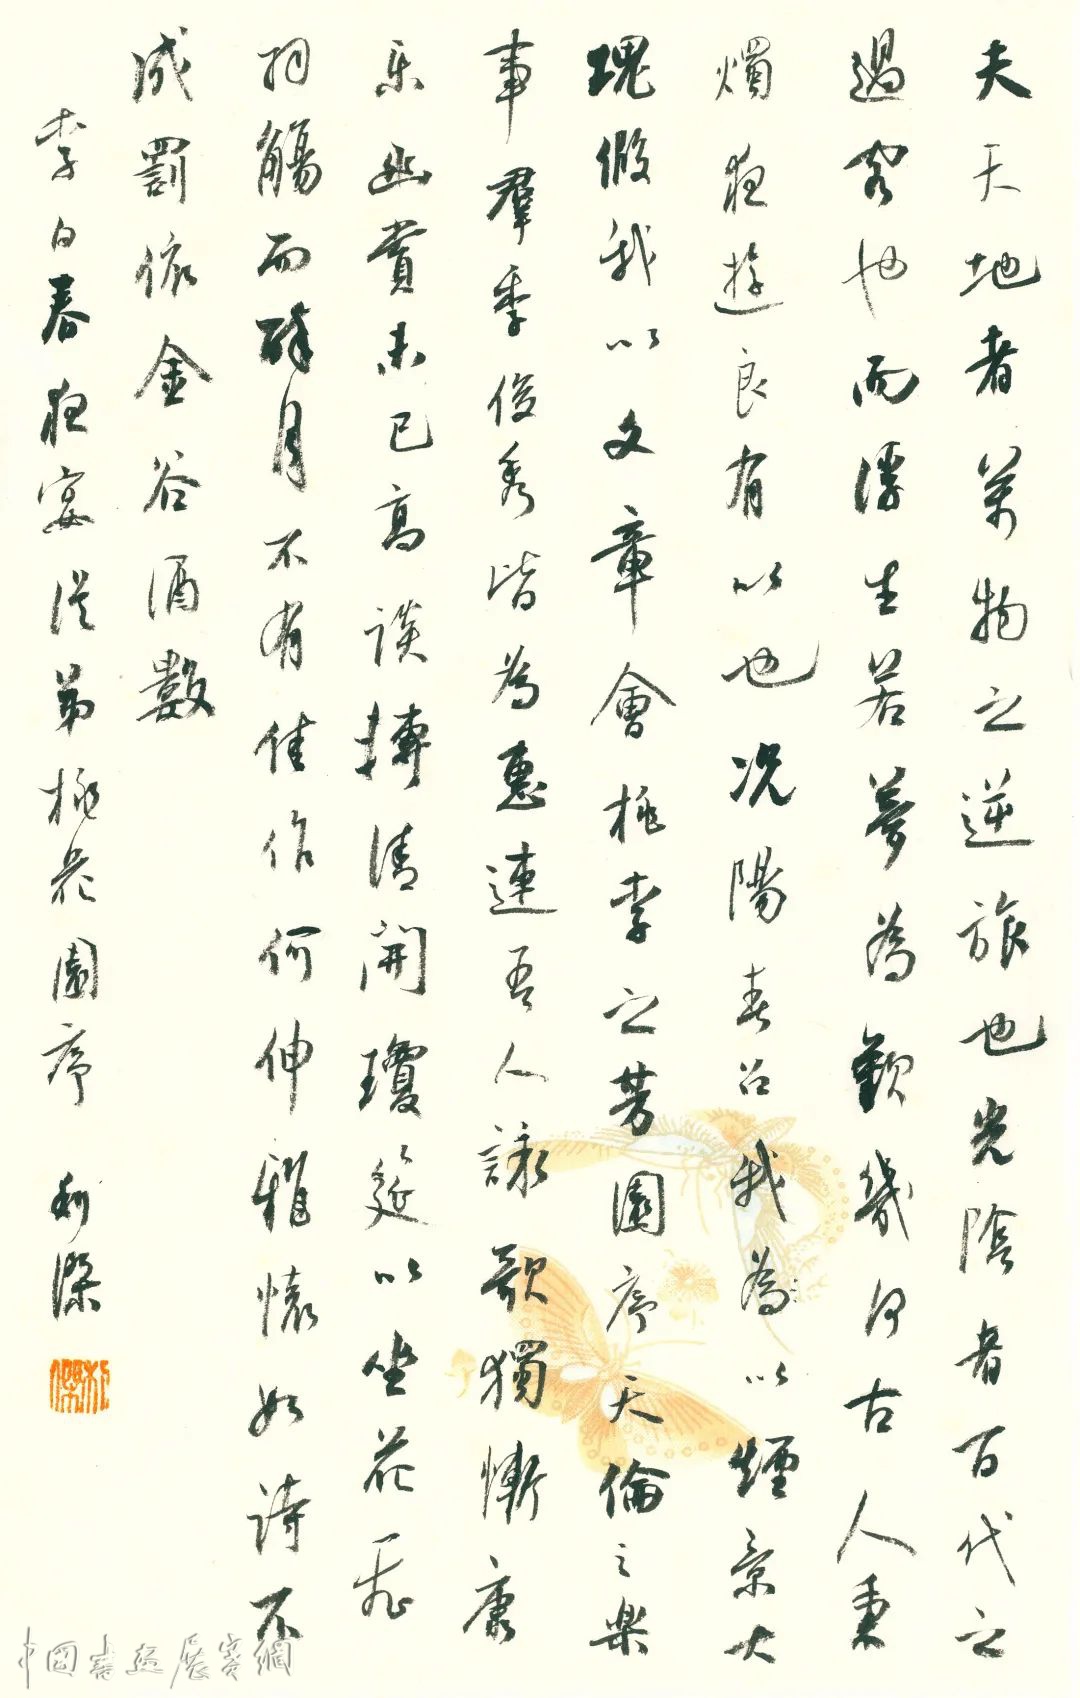 夫天地者萬物之逆旅也光陰者百代之
過客也而浮生若夢為歡幾何古人秉
燭夜遊良有以也况陽春召我為以煙景大
瑰假我以文章會桃李之芳園序天倫之樂
事羣季俊秀皆為惠連吾人詠歌獨慚康
乐幽賞未已高談轉清開瓊筵以坐花飛
羽觴而醉月不有佳作何伸雅懷如詩不
成罰依金谷酒數
李白春夜宴從弟桃花園序
中國書畫展賽網